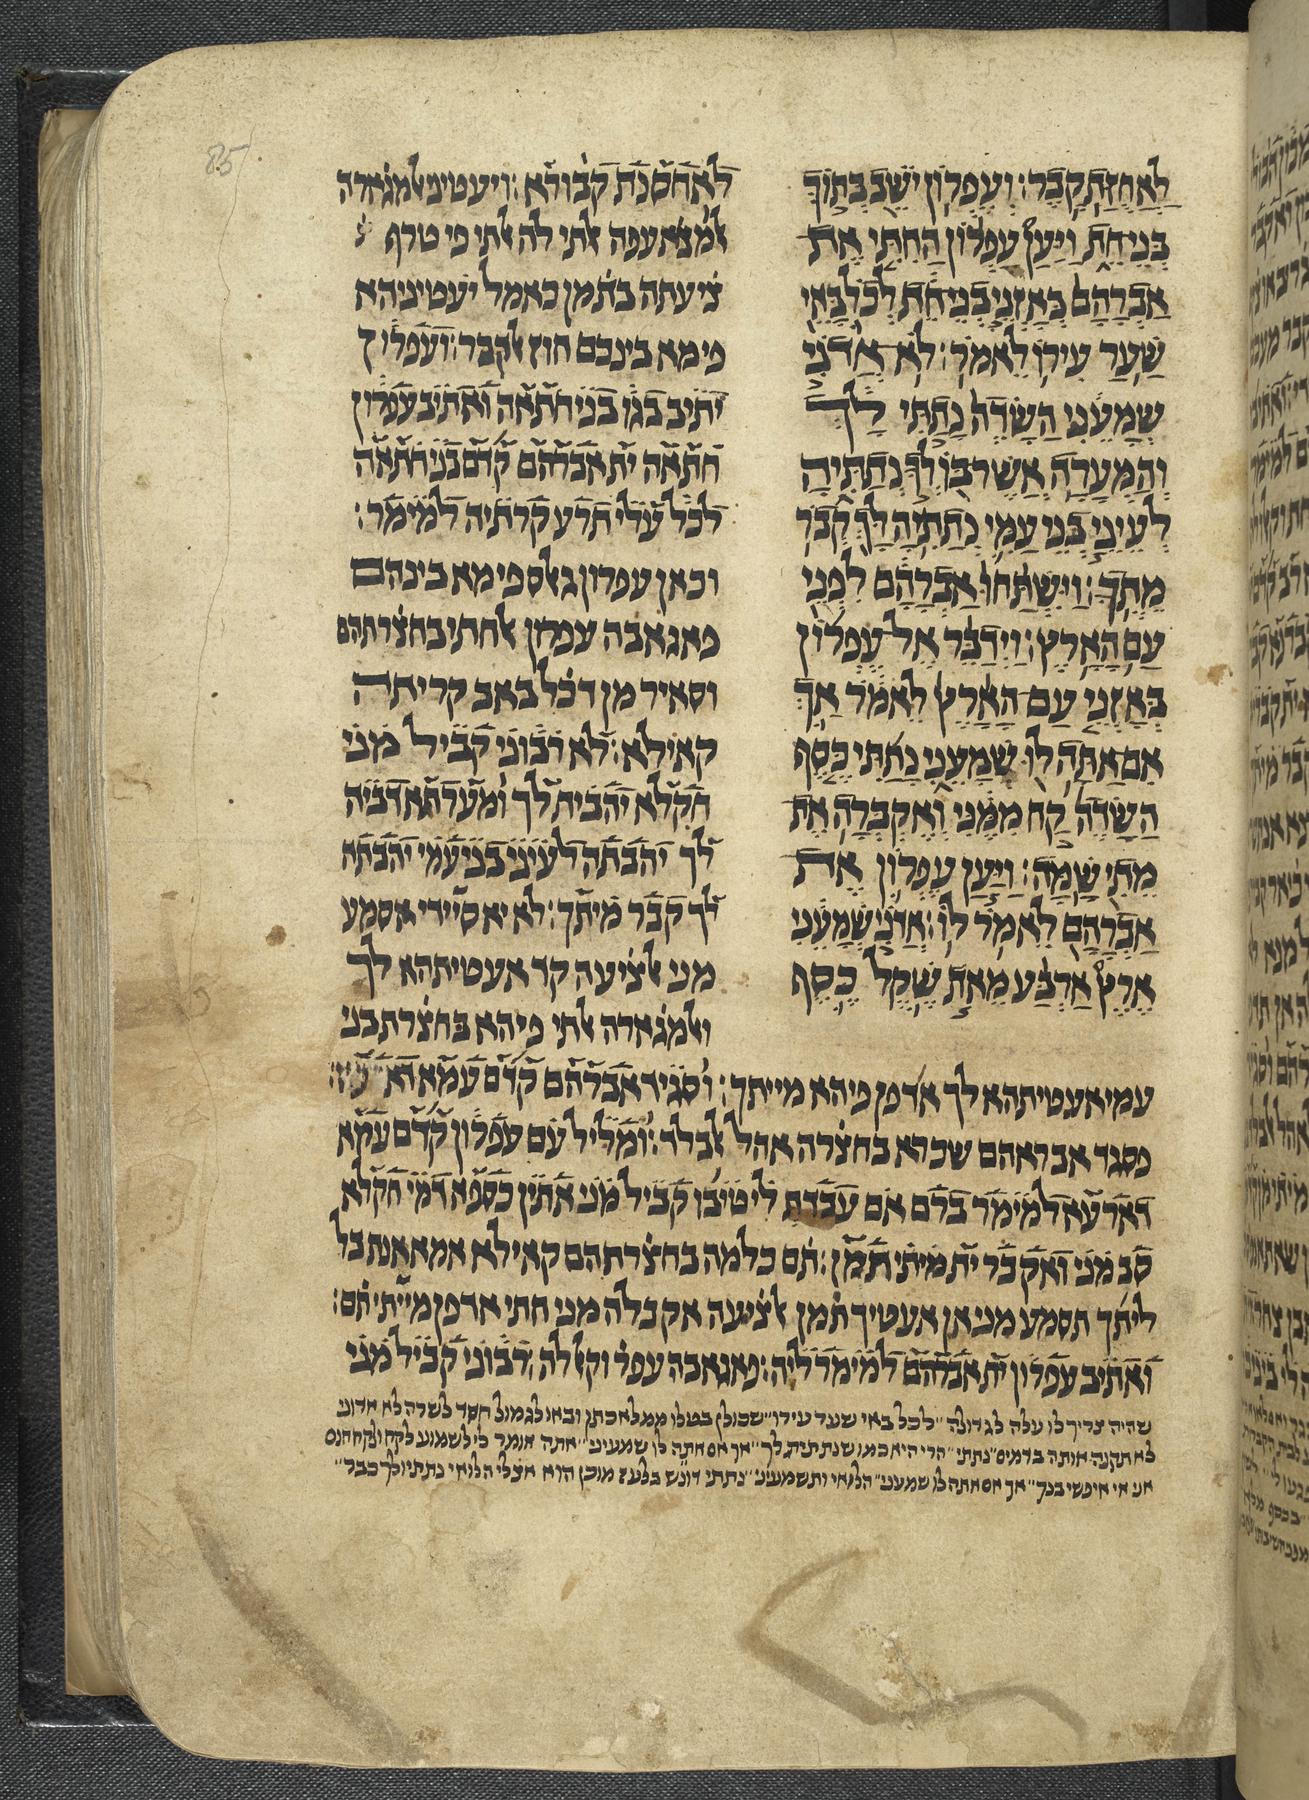 85
לַאֲחֻזַּת קָבֶר׃ וְעֶפְרוֹן יֹשֵׁב בְּתוֹךְ
בְּנֵי חֵת וַיַּעַן עֶפְרוֹן הַחִתִּי אֶת
אַבְרָהָם בְּאָזְנֵי בְנֵי חֵת לְכֹל בָּאֵי
שַׁעַר עִירוֹ לֵאמֹר׃ לֹא אֲדֹנִי
שְׁמָעֵנִי הַשָּׂדֶה נָתַתִּי לָךְ
וְהַמְּעָרָה אֲשֶׁר בּוֹ לְךָ נְתַתִּיהָ
לְעֵינֵי בְּנֵי עַמִּי נְתַתִּיהָ לָּךְ קְבֹר
מֵתֶךָ׃ וַיִּשְׁתַּחוּ אַבְרָהָם לִפְנֵי
עַם הָאָרֶץ׃ וַיְדַבֵּר אֶל עֶפְרוֹן
בְּאָזְנֵי עַם הָאָרֶץ לֵאמֹר אַךְ
אִם אַתָּה לוּ שְׁמָעֵנִי נָתַתִּי כֶּסֶף
הַשָּׂדֶה קַח מִמֶּנִּי וְאֶקְבְּרָה אֶת
מֵתִי שָׁמָּה׃ וַיַּעַן עֶפְרוֹן אֶת
אַבְרָהָם לֵאמֹר לוֹ׃ אֲדֹנִי שְׁמָעֵנִי
אֶרֶץ אַרְבַּע מֵאֹת שֶׁקֶל כֶּסֶף
לאחסנת קבורא׃ ויעטיני אלמגארה
אלמצאעפה אלתי לה אלתי פי טרף
ציעתה בתמן כאמל יעטיניהא
פימא בינכם חוז אלקבר׃ ועפרון
יתיב בגו בני חתאה ואתיב עפרון
חתאה ית אברהם קדם בני חתאה
לכל עלי תרע קרתיה למימר׃
וכאן עפרון גאלס פימא בינהם
פאגאבה עפרון אלחתי בחצרתהם
וסאיר מן דכל באב קריתה
קאילא׃ לא רבוני קביל מני
חקלא יהבית לך ומערתא דביה
לך יהבתה לעיני בני עמי יהבתה
לך קבר מיתך׃ לא יא סיידי אסמע
מני אלציעה קד אעטיתהא לך
ואלמגארה אלתי פיהא בחצרת בני
עמי אעטיתהא לך אדפן פיהא מייתך׃ וסגיד אברהם קדם עמא
פסגד אבראהם שכרא בחצרה אהל אלבלד׃ ומליל עם עפרון קדם עמא
דארעא למימר ברם אם עבדת לי טיבו קביל מני אתין כספא דמי חקלא
סב מני ואקבר ית מיתי תמן׃ תם כלמה בחצרתהם קאילא אמא אנת בל
ליתך תסמע מני אן אעטיך תמן אלציעה אקבלה מני חתי ארפן מייתי תם׃
ואתיב עפרון ית אברהם למימר ליה׃ פאגאבה עפר וקאל לה רבוני קביל מני
שהיה צריך לו עלה לגדולה לכל באי שער עירו שכולן בטלו ממלאכתן ובאו לגמול חסד לשרה לא אדוני
לא תקנה אותה בדמים נתתי הרי היא כמו שנתתיה לך אך אם אתה לו שמעני אתה אומר לי לשמוע לקח חנם
אני אי איפשי בכך אך אם אתה לו שמעני הלואי ותשמעני נתתי דונש בלעז מוכן הוא אצלי הלואי נתתי לך כבר